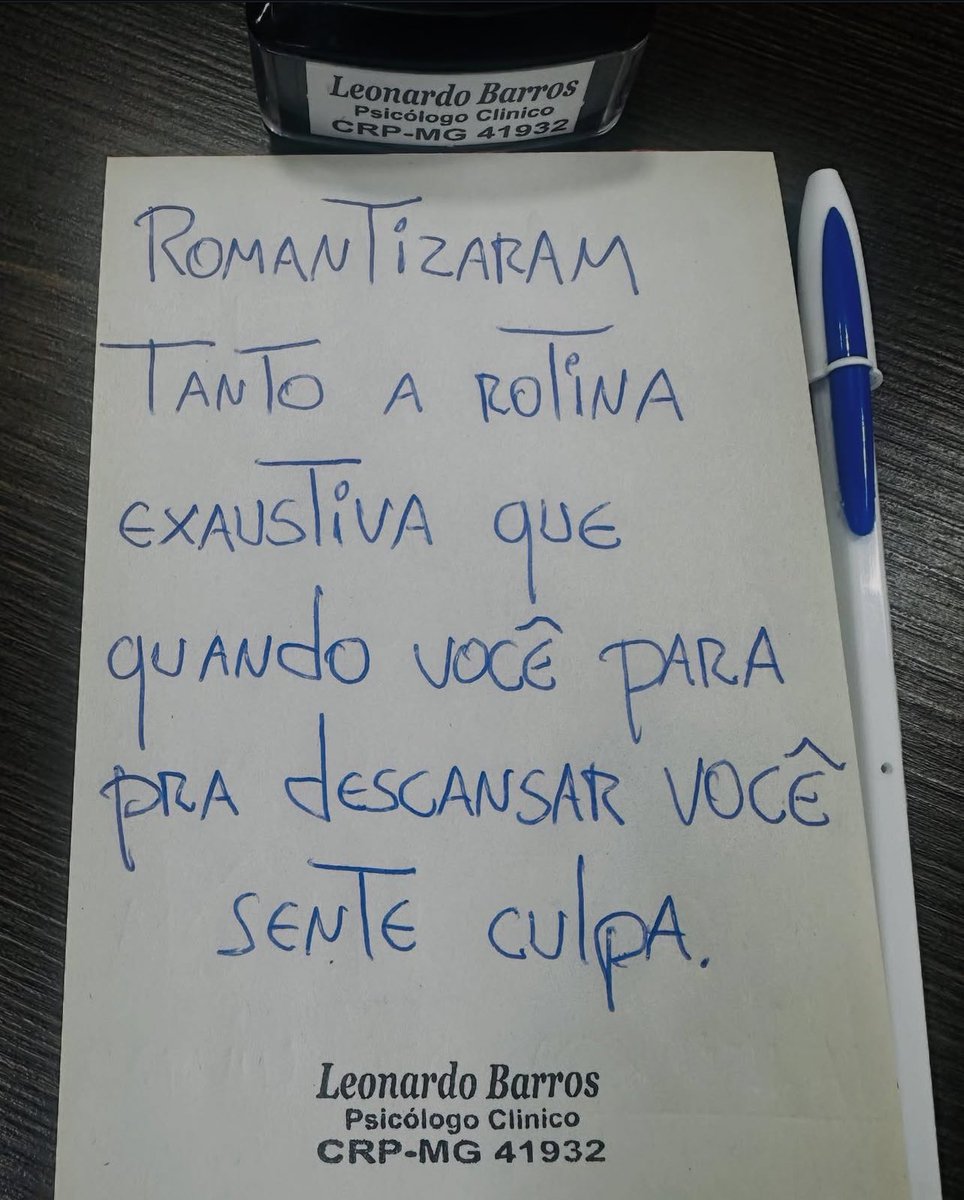 Leonardo Barros
Psicólogo Clinico
CRP-MG 41932
ROMANTIZARAM
TANTO A ROTINA
EXAUSTIVA QUE
QUANDO VOCÊ PARA
PRA DESCANSAR VOCÊ
SENTE CULPA.
Leonardo Barros
Psicólogo Clinico
CRP-MG 41932